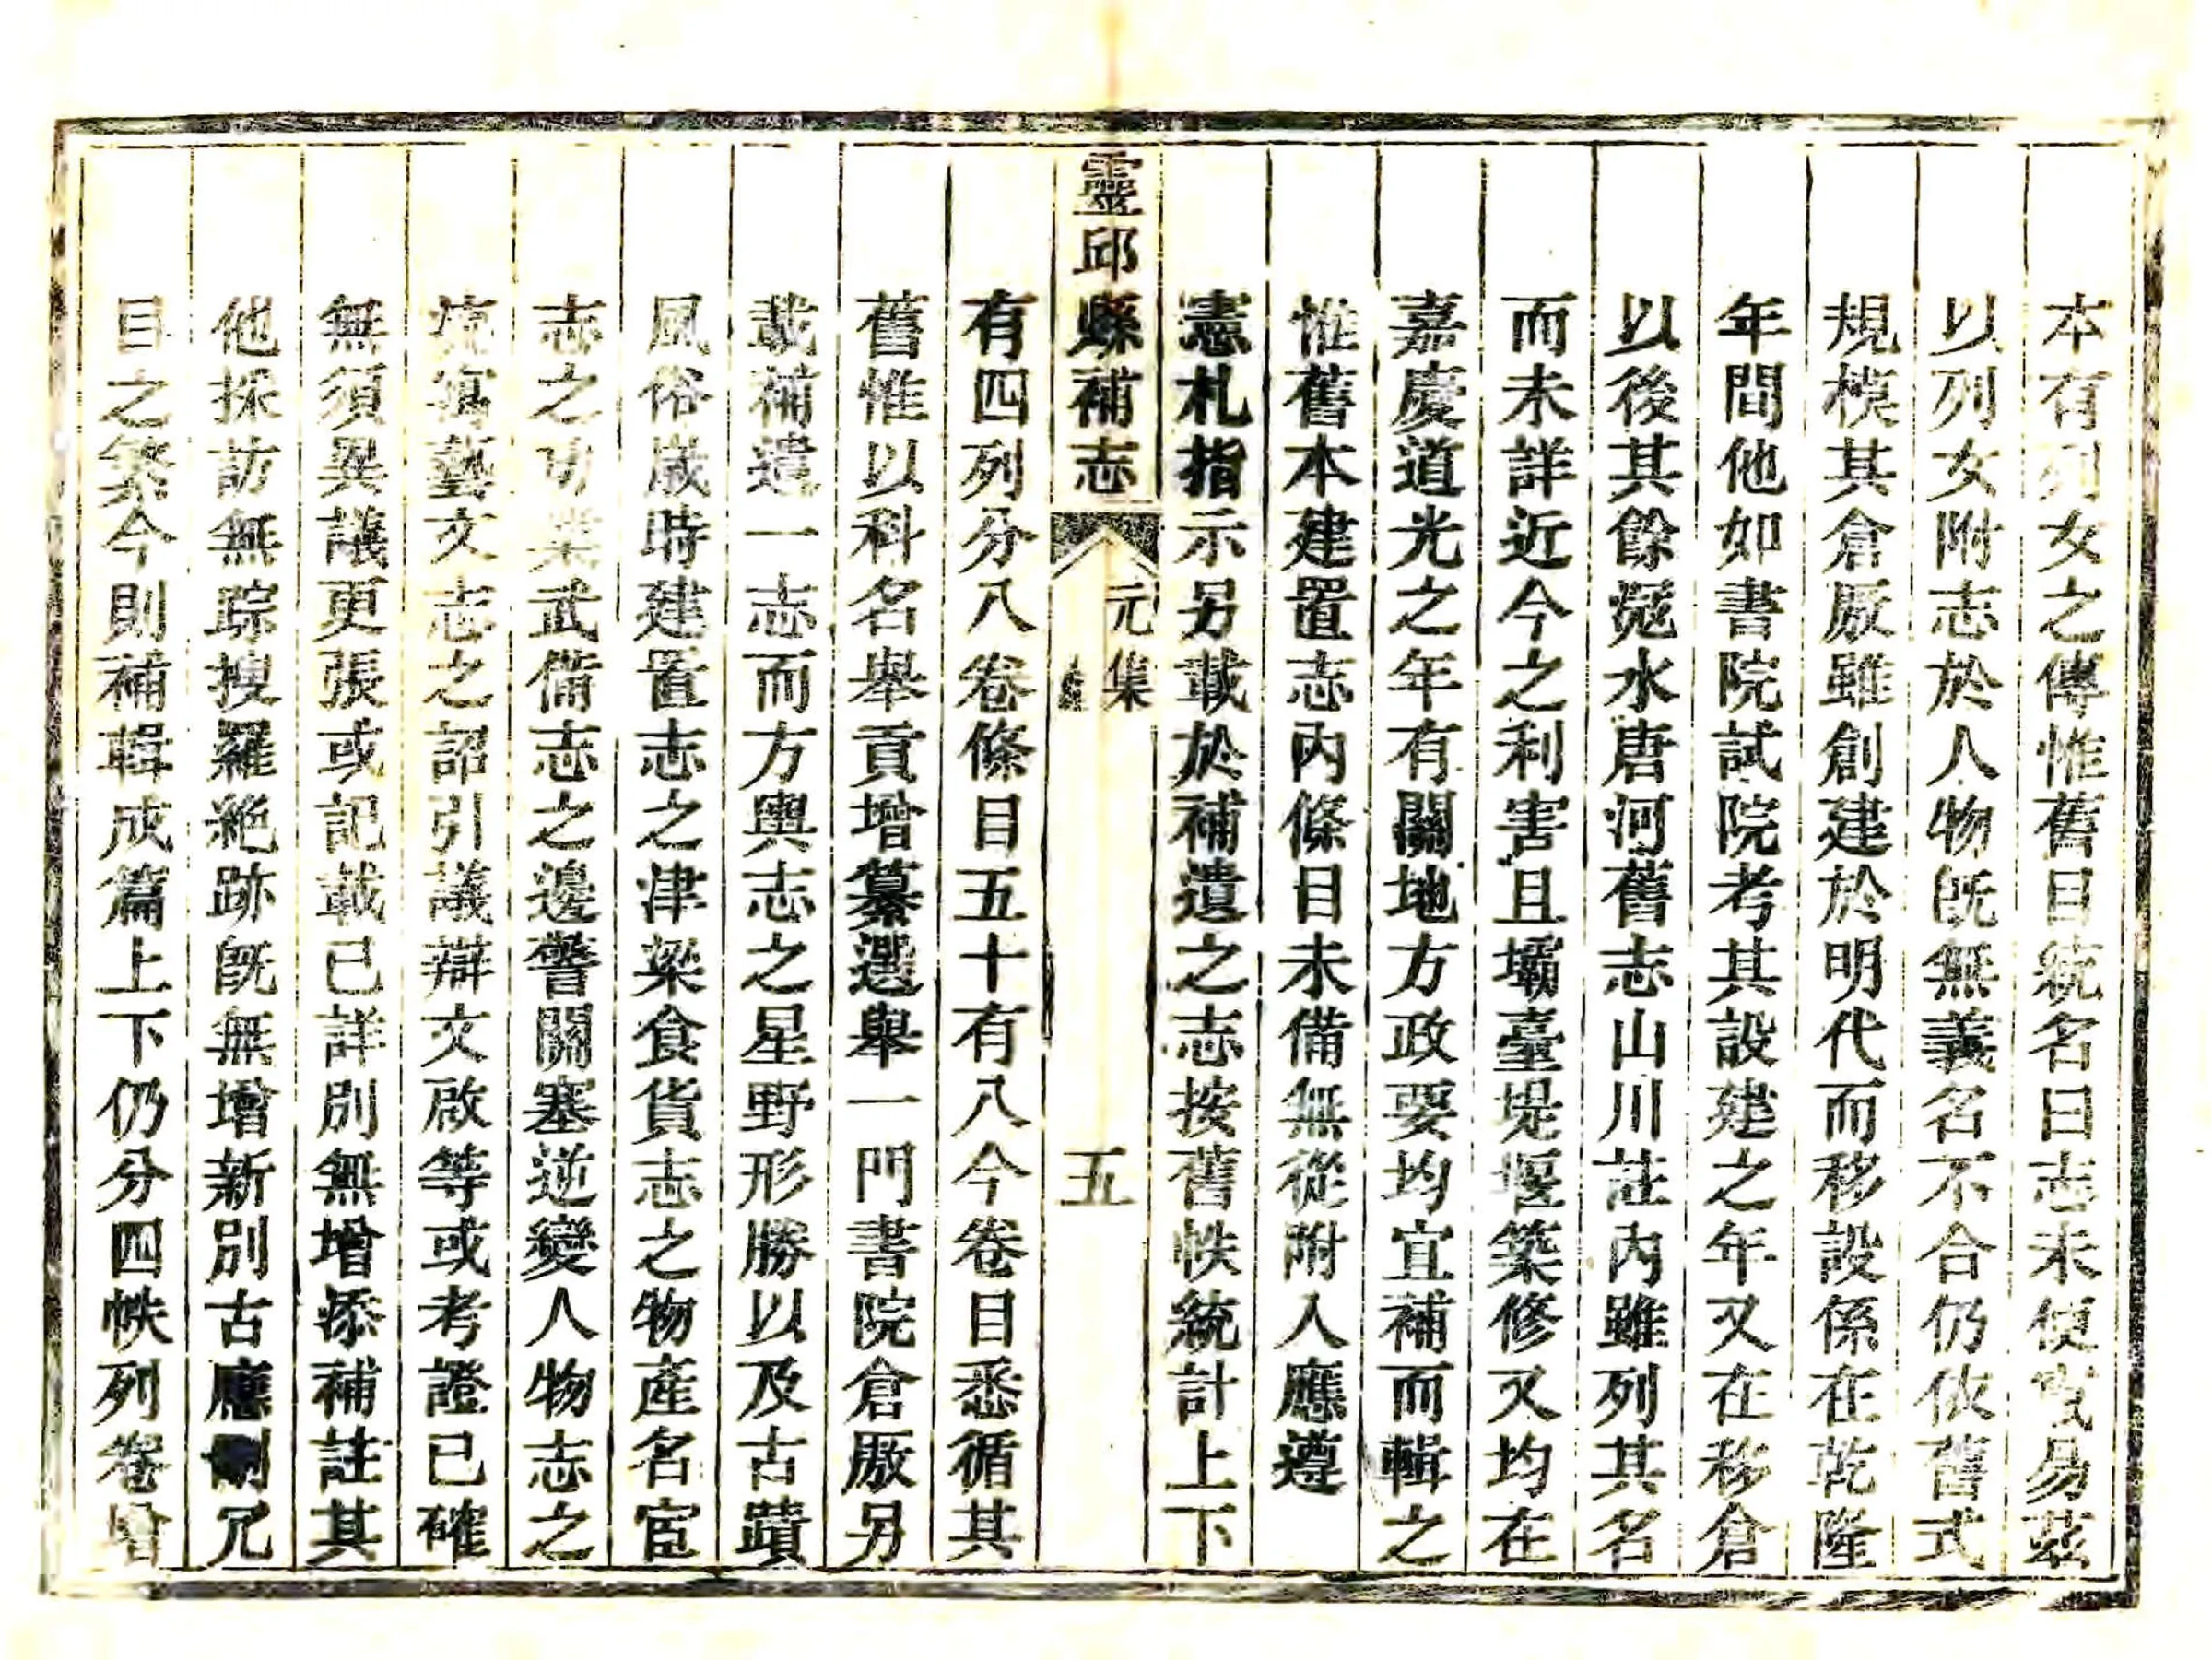 本有列女之傳惟舊目統名曰志未便改易茲
以列女附志於人物旣無義名不合仍依舊式
規模其倉厫雖創建於明代而移設係在乾隆
年間他如書院試院考其設建之年又在移倉
以後其餘滱水唐河舊志山川註內雖列其名
而未詳近今之利害且壩臺堤堰築修又均在
嘉慶道光之年有關地方政要均宜補而輯之
惟舊本建置志內條目未備無從附入應遵
憲札指示另載於補遺之志按舊帙統計上下
靈邱縣補志 元集 五
有四列分八卷條目五十有八今卷目悉循其
舊惟以科名舉貢增纂選舉一門書院倉厫另
載補遺一志而方輿志之星野形勝以及古蹟
風俗歲時建置志之津梁食貨志之物產名宦
志之功業武備志之邊警關塞逆變人物志之
流寓藝文志之詔引議辯文啟等或考證已確
無須異議更張或記載已詳別無增添補註其
他採訪無踪搜羅絕跡旣無增新別古應刪冗
目之繁今則補輯成篇上下仍分四帙列卷增